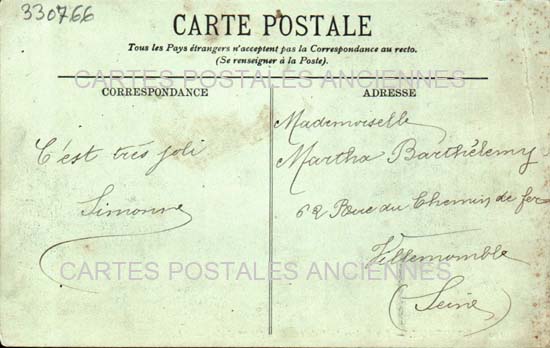 330766
CARTE POSTALE
Tous les Pays étrangers n'acceptent pas la Correspondance au recto.
(Se renseigner à la Poste).
CARTES POSTALES ANCIENNES
CORRESPONDANCE
C'est très joli
Simonne
ADRESSE
Mademoiselle
Martha Barthélemy
62 Rue du Chemin de fer
Villemomble
(Seine)
CARTES POSTALES ANCIENNES